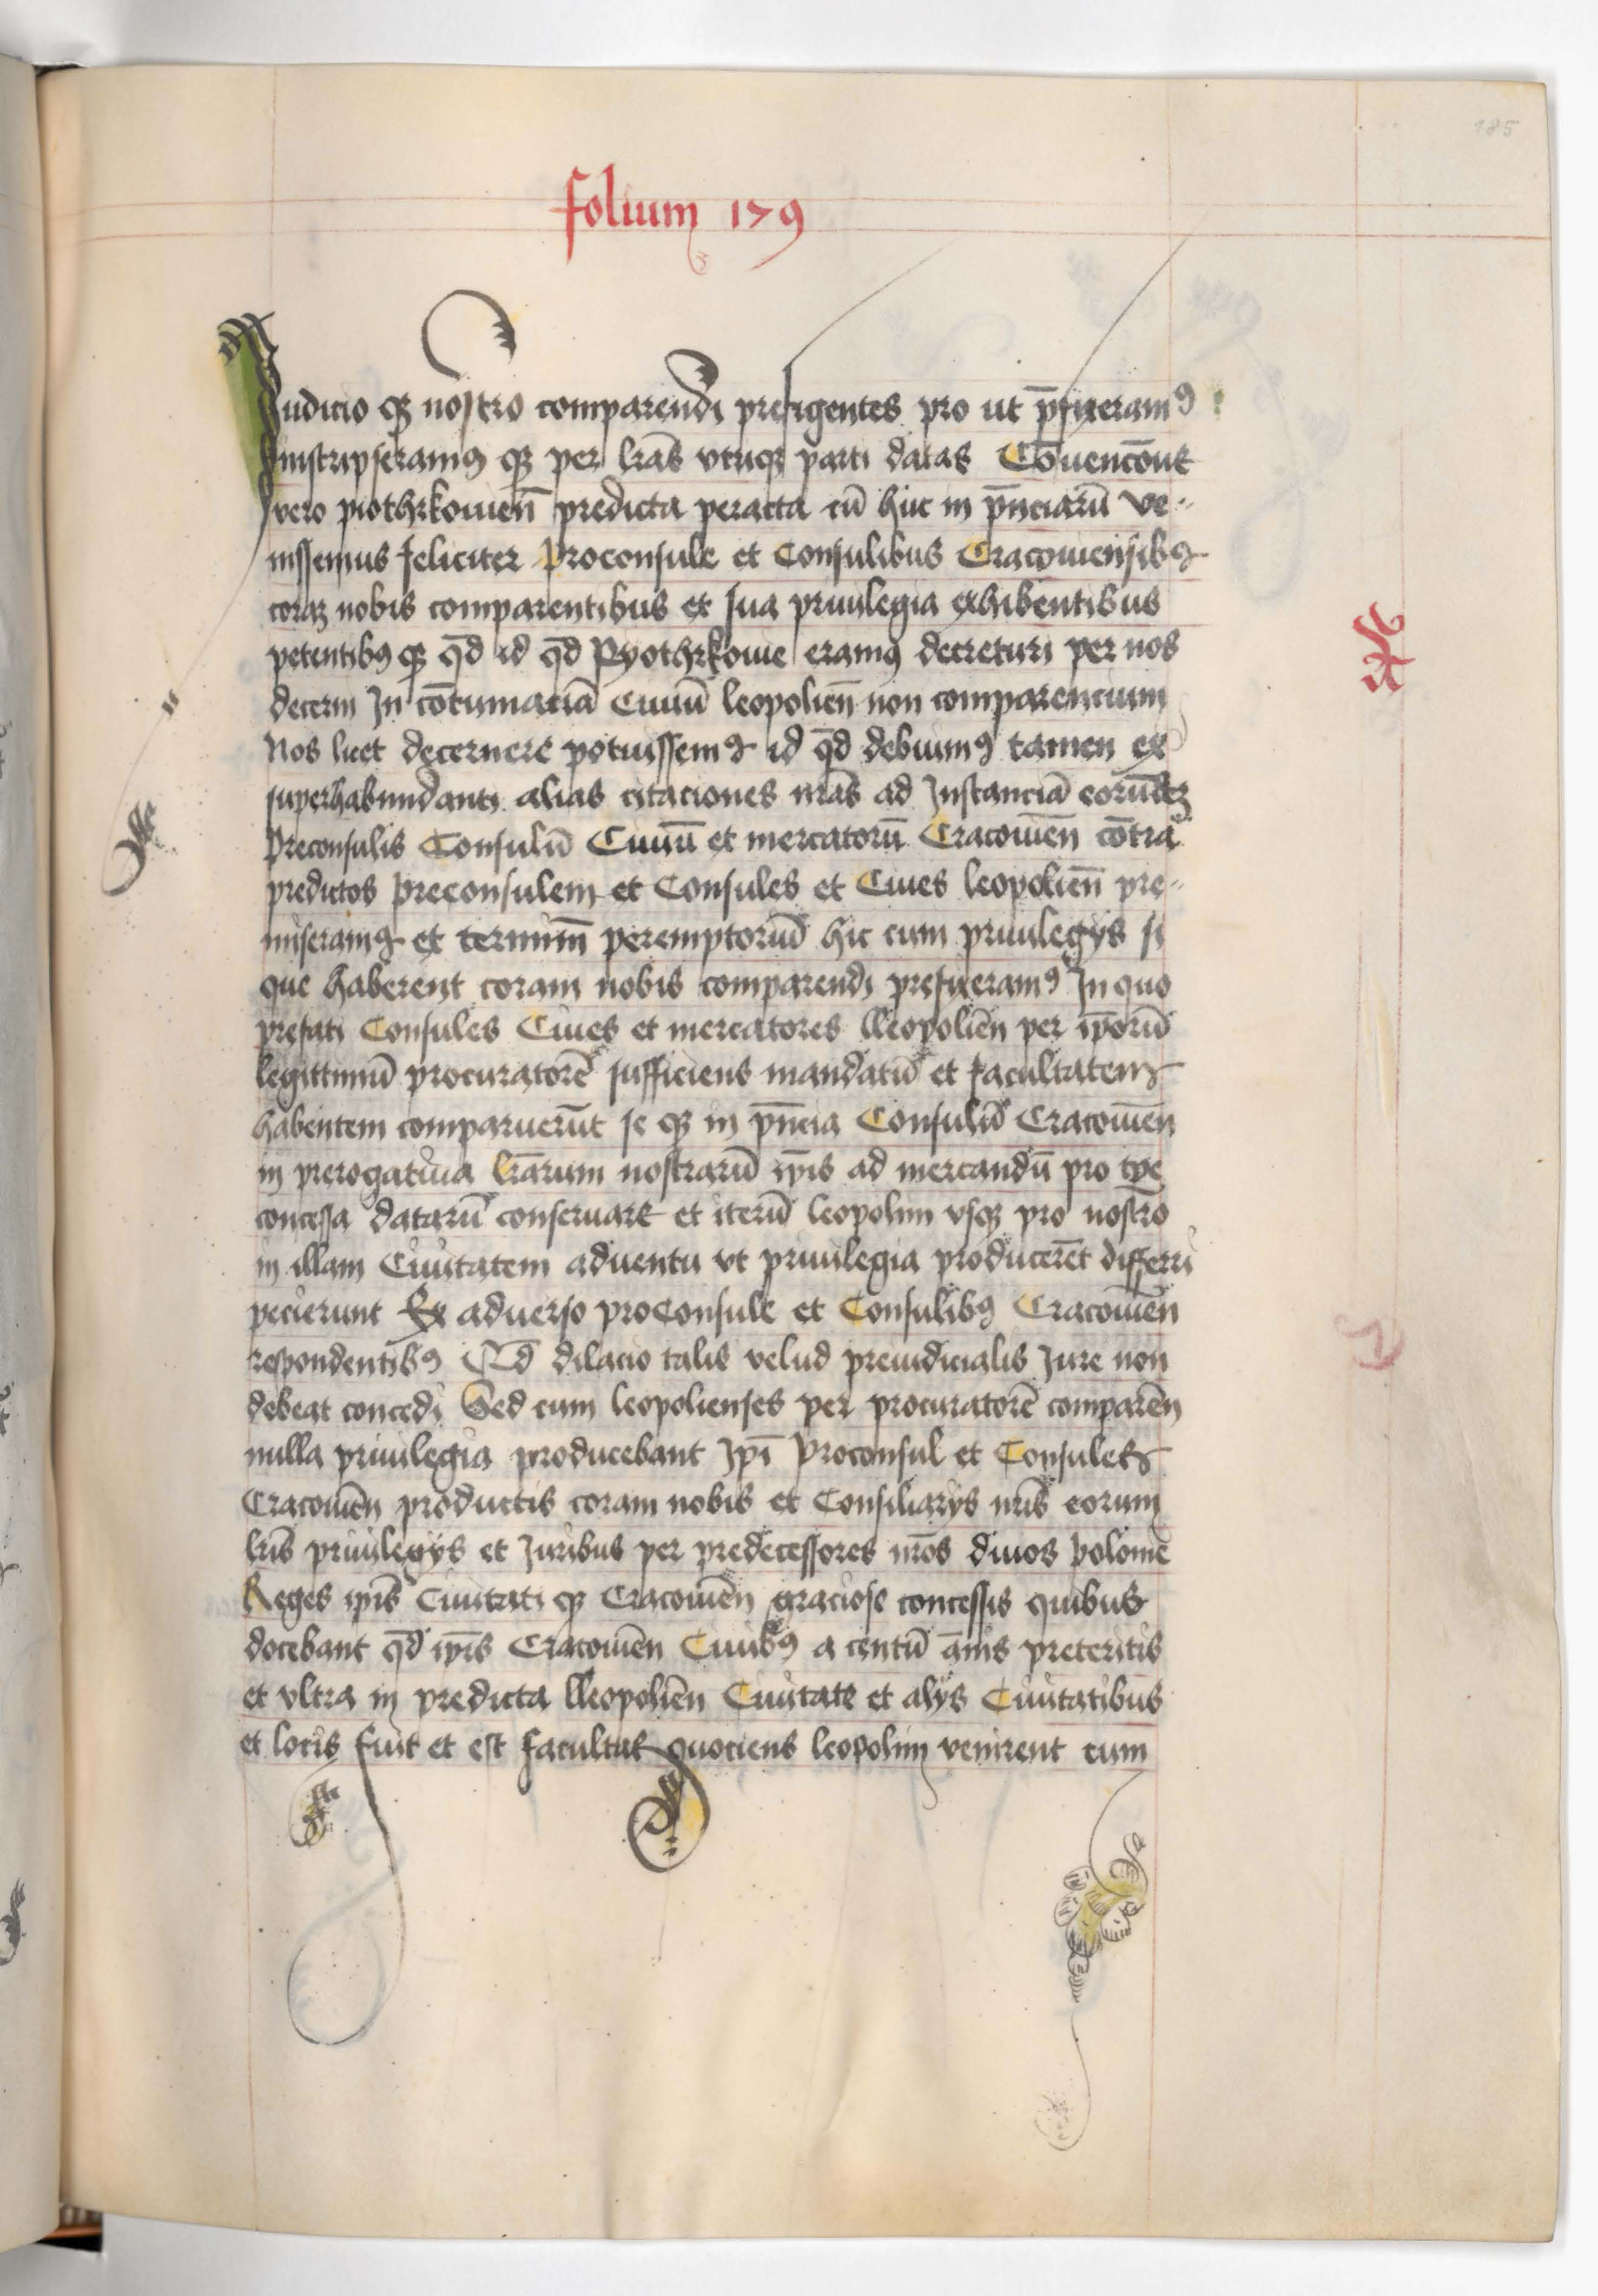 185
folium 179
Iudicio qꝫ nostro comparendi prefigentes pro ut p̄fixeramꝰ
Inscripseramꝰ qꝫ per lr̄as vtriqꝫ parti datas Cōuencōne
vero piothrkouien̄ predicta peracta cū huc in p̄nciarū ve-
nissemus feliciter Proconsule et Consulibus Cracouiensibꝰ
coraꝫ nobis comparentibus et sua priuilegia exhibentibus
petentibꝰ qꝫ qd̄ id qd̄ Pyothrkouie eramꝰ decreturi per nos
decerni In cōtumaciā Ciuiū leopolien̄ non comparencium
Nos licet decernere potuissemꝰ id qd̄ debuimꝰ tamen ex
superhabundanti alias citaciones nr̄as ad Instanciā eorūdeꝫ
Preconsulis Consulū Ciuiū et mercatorū Cracouien̄ cōtra
predictos preconsulem et Consules et Ciues leopolien̄ pre-
miseramꝰ et terminū peremptoriū hic cum priuilegÿs si
que haberent coram nobis comparendi prefixeramꝰ In quo
prefati Consules Ciues et mercatores lleopolien̄ per ip̄orū
legittimū procuratorē sufficiens mandatū et facultatem
habentem comparuerūt se qꝫ in p̄ncia Consulū Cracouien̄
in prerogatiua lr̄arum nostrarū ip̄is ad mercandū pro tp̄e
concessa datarū conseruare et iterū leopolim vsqꝫ pro nostro
in illam Ciuitatem aduentu vt priuilegia producerēt differri
pecierunt Ex aduerso proConsule et Consulibꝰ Cracouien̄
respondentibꝰ Qd̄ dilacio talis velud preiudicialis Iure non
debeat concedi Sed cum leopolienses per procuratorē comparēn
nulla priuilegia producebant Ip̄i Proconsul et Consules
Cracouien̄ productis coram nobis et Consiliarÿs nr̄is eorum
lr̄is priuilegÿs et Iuribus per predecessores nr̄os diuos polonie
Reges ip̄is Ciuitati qꝫ Cracouien̄ graciose concessis quibus
docebant qd̄ ip̄is Cracouien̄ Ciuibꝰ a centū ānis preteritis
et vltra in predicta lleopolien̄ Ciuitate et alÿs Ciuitatibus
et locis fuit et est facultas quociens leopolim venirent cum